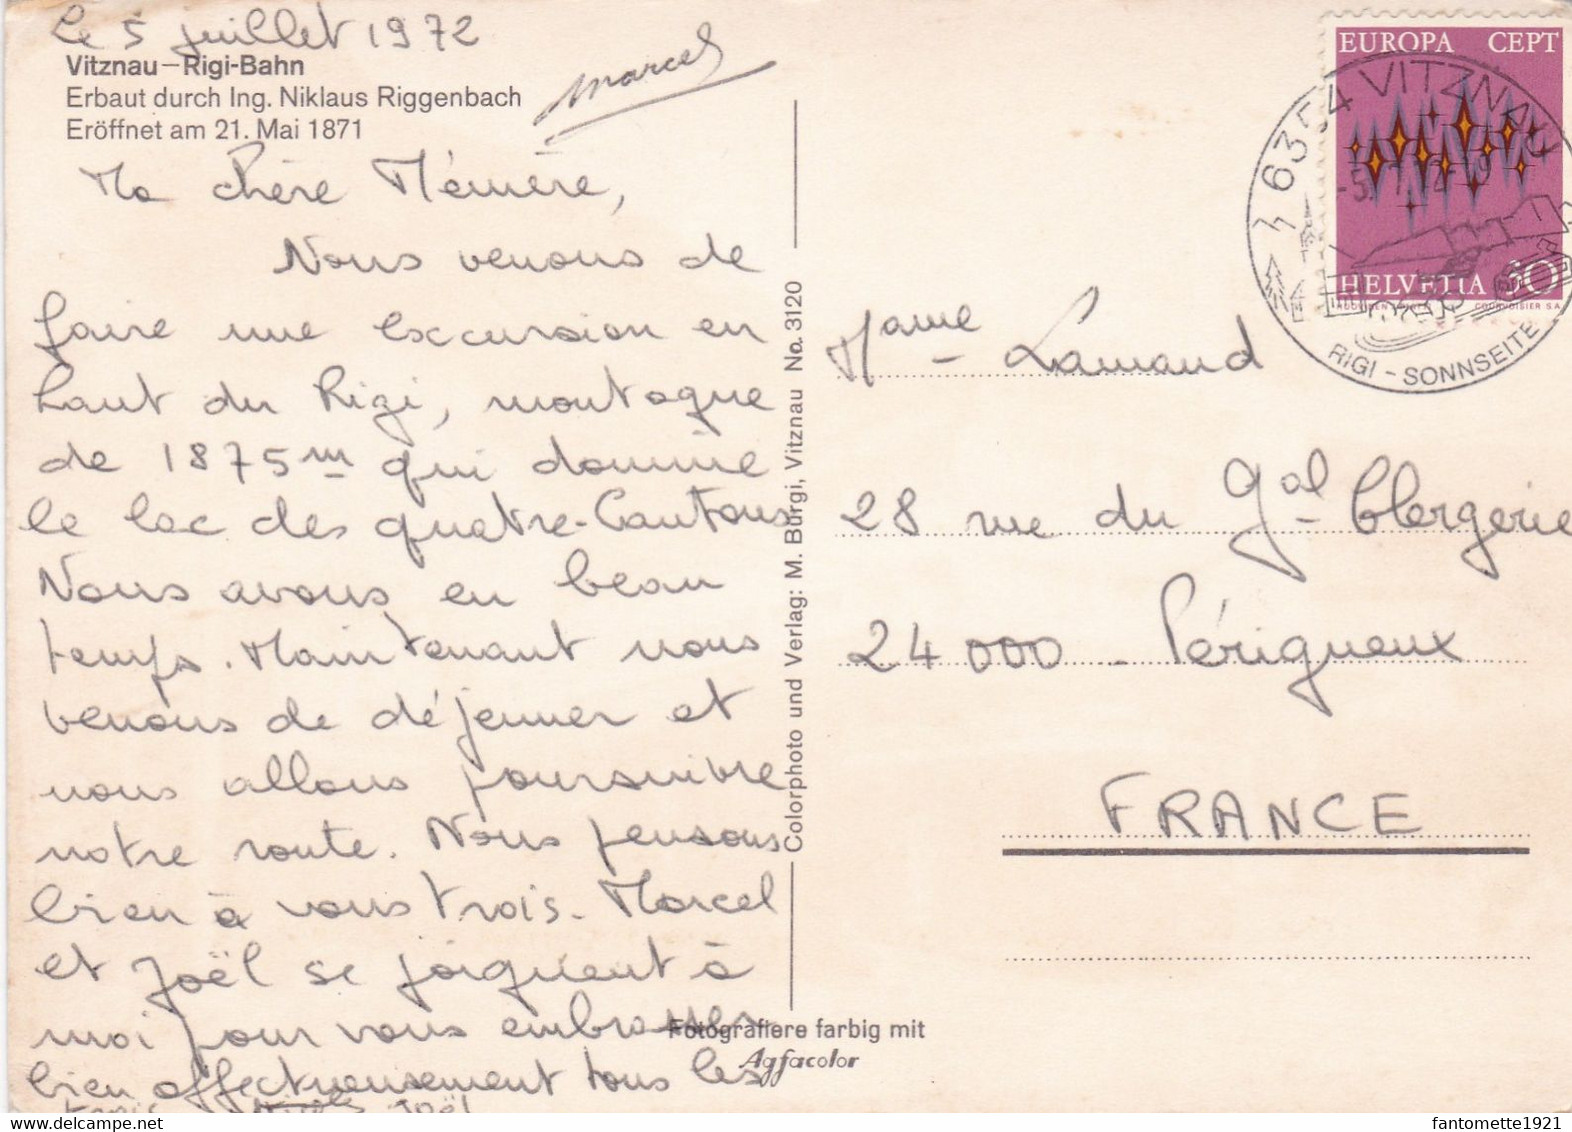 Le 5 juillet 1972
Vitznau–Rigi-Bahn
Erbaut durch Ing. Niklaus Riggenbach
Eröffnet am 21. Mai 1871
Marcel
Ma chère Mémère,
Nous venons de
faire une excursion en
haut du Rigi, montagne
de 1875m qui domine
le lac des quatre-Cantons
Nous avons eu beau
temps. Maintenant nous
venons de déjeuner et
nous allons poursuivre
notre route. Nous pensons
bien à vous trois. Marcel
et Joël se joignent à
moi pour vous embrasser
bien affectueusement tous les
trois Joël
Colorphoto und Verlag: M. Bürgi, Vitznau No. 3120
Fotografiere farbig mit
Agfacolor
EUROPA CEPT
HELVETIA 30
COURVOISIER S.A.
6354 VITZNAU
-5.7.72-19
RIGI-SONNSEITE
Mame Lamaud
28 rue du Gal Clergerie
24000 - Périgueux
FRANCE
fantomette1921